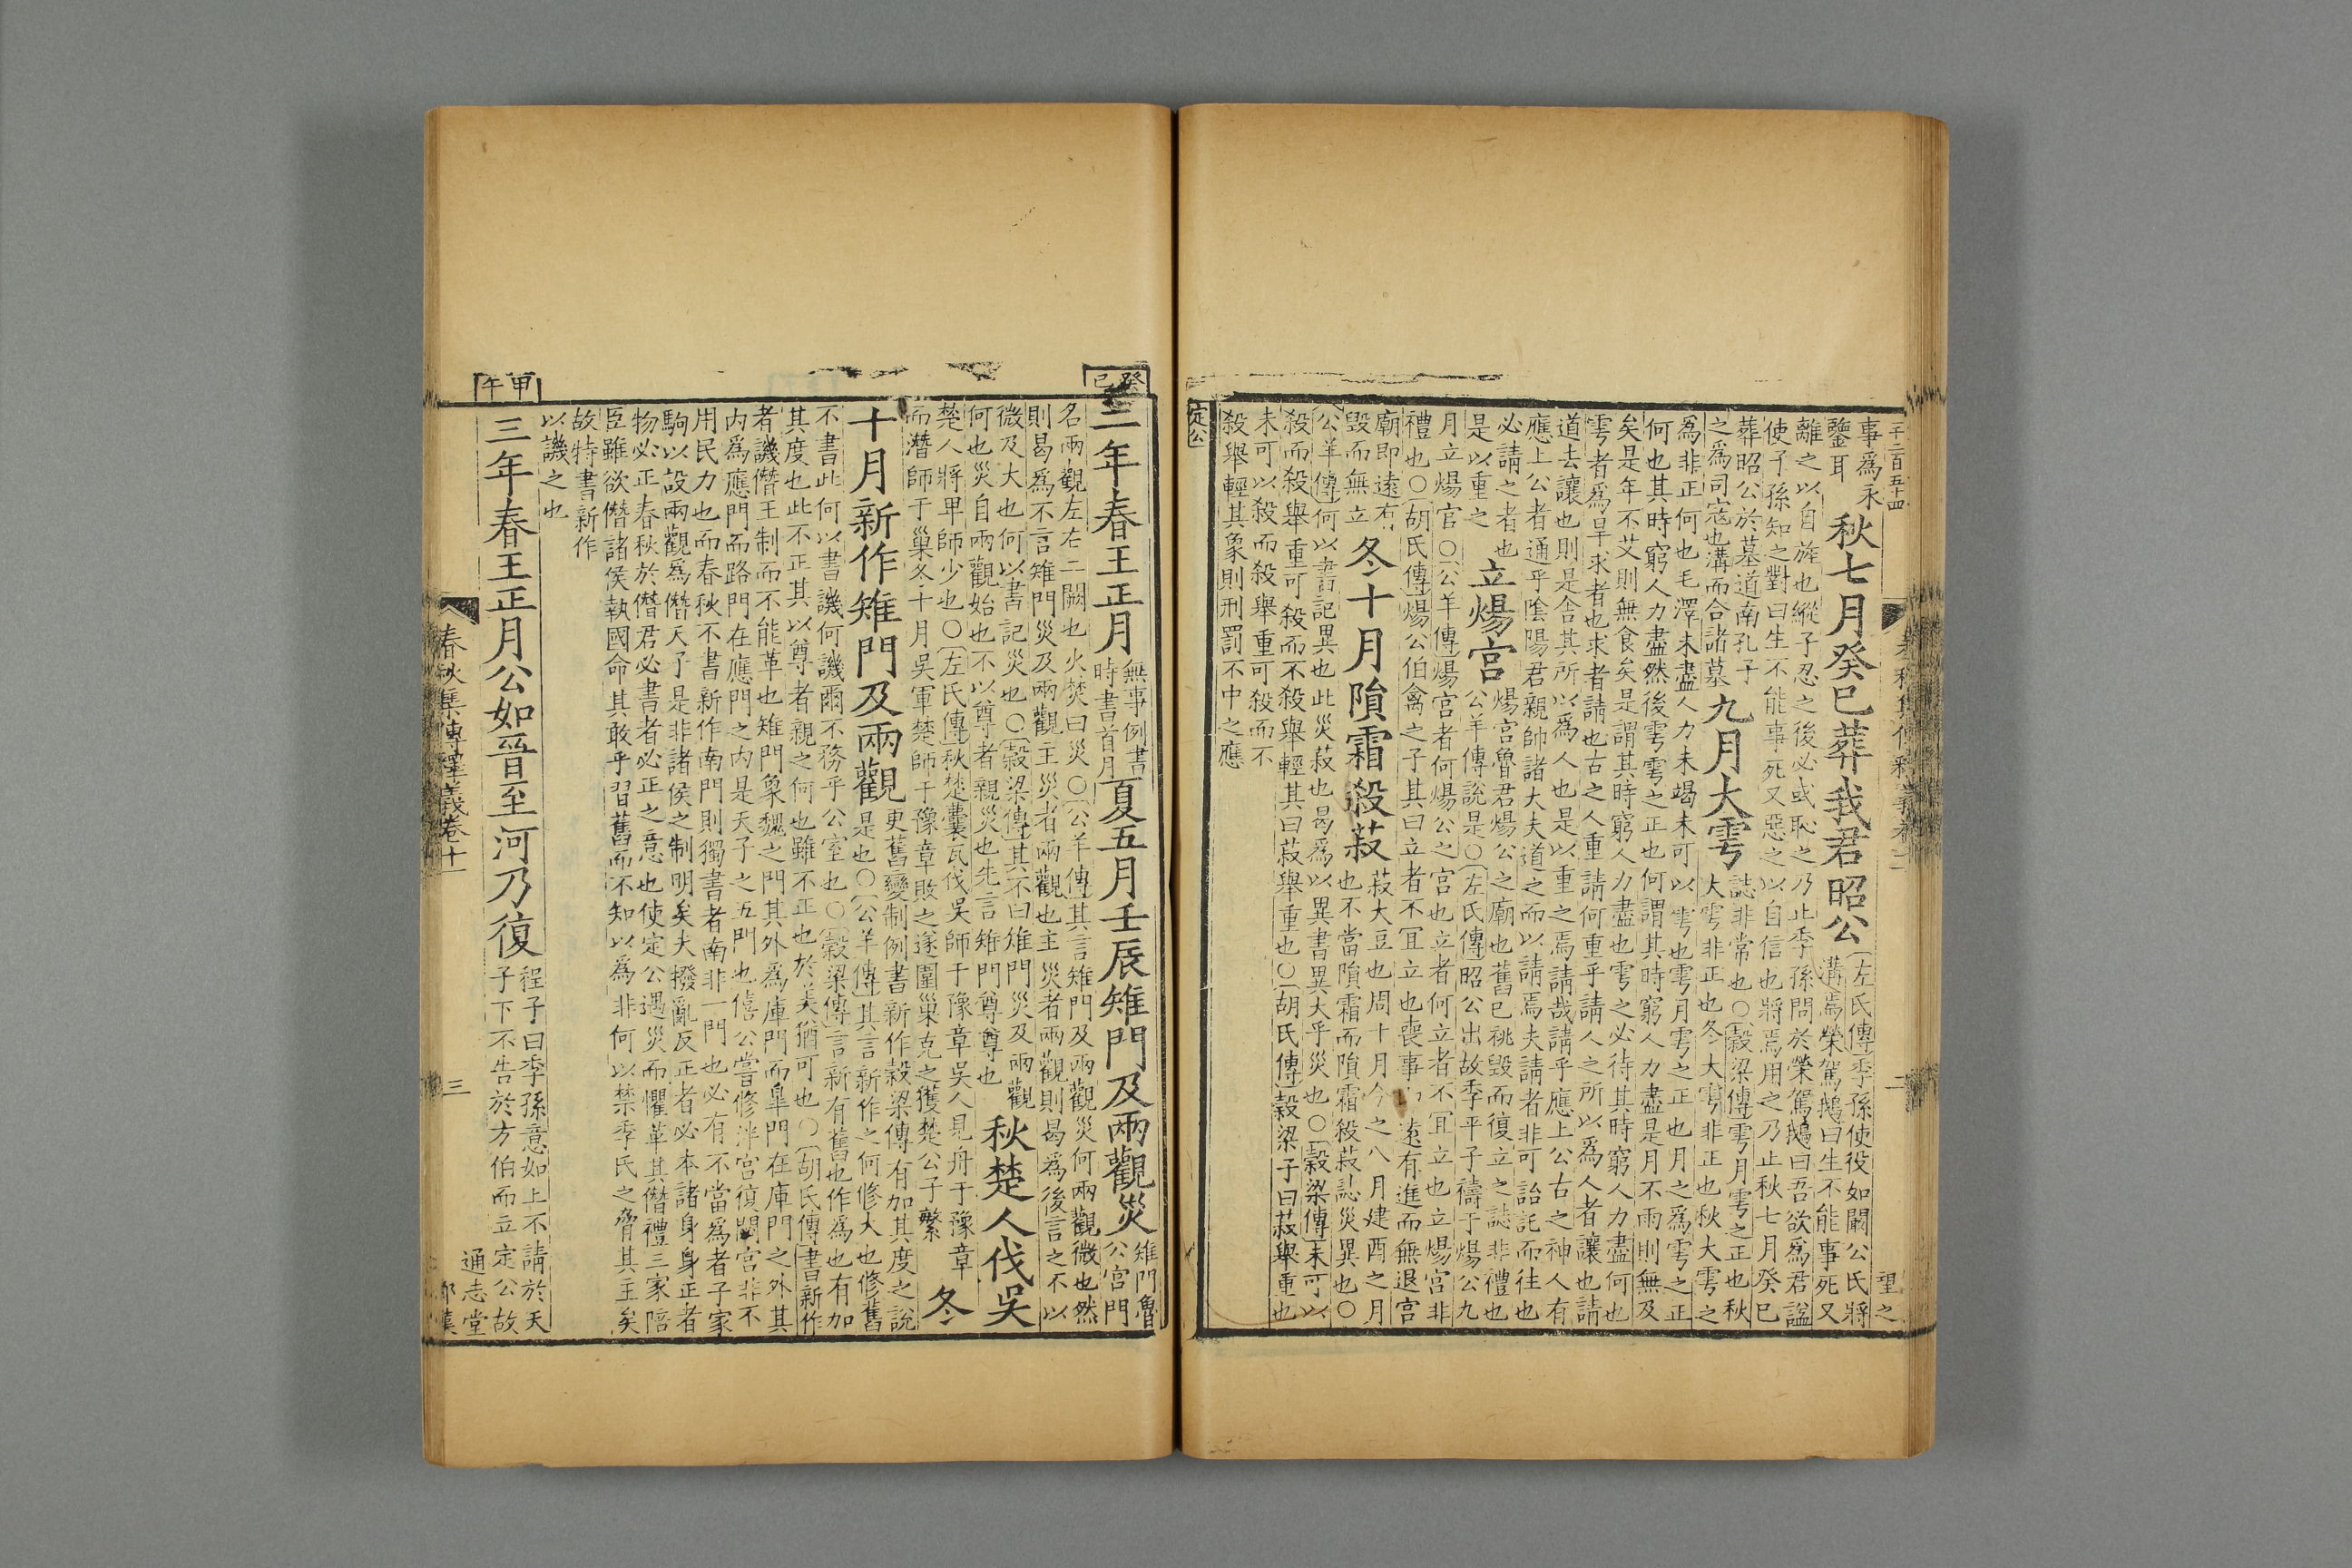 二千二百五十四
望之
事爲永
鑒耳
秋七月癸巳葬我君昭公
左氏傳季孫使役如闞公氏將
溝焉榮駕鵞曰生不能事死又
離之以自旌也縱子忍之後必或恥之乃止季孫問於榮駕鵞曰吾欲爲君謚
使子孫知之對曰生不能事死又惡之以自信也將焉用之乃止秋七月癸巳
葬昭公於墓道南孔子
之爲司寇也溝而合諸墓
九月大雩
誌非常也○穀梁傳雩月雩之正也秋
大雩非正也冬大雩非正也秋大雩之
爲非正何也毛澤未盡人力未竭未可以雩也雩月雩之正也月之爲雩之正
何也其時窮人力盡然後雩雩之正也何謂其時窮人力盡是月不雨則無及
矣是年不艾則無食矣是謂其時窮人力盡也雩之必待其時窮人力盡何也
雩者爲旱求者也求者請也古之人重請何重乎請人之所以爲人者讓也請
道去讓也則是舍其所以爲人也是以重之焉請哉請乎應上公古之神人有
應上公者通乎陰陽君親帥諸大夫道之而以請焉夫請者非可詒託而往也
必請之者也
是以重之
立煬宮
煬宮魯君煬公之廟也舊已祧毀而復立之誌非禮也
公羊傳說是○左氏傳昭公出故季平子禱于煬公九
月立煬宮○公羊傳煬宮者何煬公之宮也立者何立者不宜立也立煬宮非
禮也○胡氏傳煬公伯禽之子其曰立者不宜立也喪事遠有進而無退宮
廟即遠有
毀而無立
冬十月隕霜殺菽
菽大豆也周十月今之八月建酉之月
也不當隕霜而隕霜殺菽誌災異也○
公羊傳何以書記異也此災菽也曷爲以異書異大乎災也○穀梁傳未可以
殺而殺舉重可殺而不殺舉輕其曰菽舉重也○胡氏傳穀梁子曰菽舉重也
未可以殺而殺舉重可殺而不
殺舉輕其象則刑罰不中之應
定公
癸巳
二年春王正月
無事例書
時書首月
夏五月壬辰雉門及兩觀災
雉門魯
公宮門
名兩觀左右二闕也火焚曰災○公羊傳其言雉門及兩觀災何兩觀微也然
則曷爲不言雉門災及兩觀主災者兩觀也主災者兩觀則曷爲後言之不以
微及大也何以書記災也○穀梁傳其不曰雉門災及兩觀
何也災自兩觀始也不以尊者親災也先言雉門尊尊也
秋楚人伐吳
楚人將卑師少也○左氏傳秋楚囊瓦伐吳師于豫章吳人見舟于豫章
而潛師于巢冬十月吳軍楚師于豫章敗之遂圍巢克之獲楚公子繁
冬
十月新作雉門及兩觀
更舊變制例書新作穀梁傳有加其度之說
是也○公羊傳其言新作之何修大也修舊
不書此何以書譏何譏爾不務乎公室也○穀梁傳言新有舊也作爲也有加
其度也此不正其以尊者親之何也雖不正也於美猶可也○胡氏傳書新作
者譏僭王制而不能革也雉門象魏之門其外爲庫門而皐門在庫門之外其
内爲應門而路門在應門之内是天子之五門也僖公嘗修泮宮復閟宮非不
用民力也而春秋不書新作南門則獨書者南非一門也必有不當爲者子家
駒以設兩觀爲僭天子是非諸侯之制明矣夫撥亂反正者必本諸身身正者
物必正春秋於僭君必書者必正之意也使定公遇災而懼革其僭禮三家陪
臣雖欲僭諸侯執國命其敢乎習舊而不知以爲非何以禁季氏之脅其主矣
故特書新作
以譏之也
甲午
三年春王正月公如晉至河乃復
程子曰季孫意如上不請於天
子下不告於方伯而立定公故
春秋集傳釋義卷十一
三
通志堂